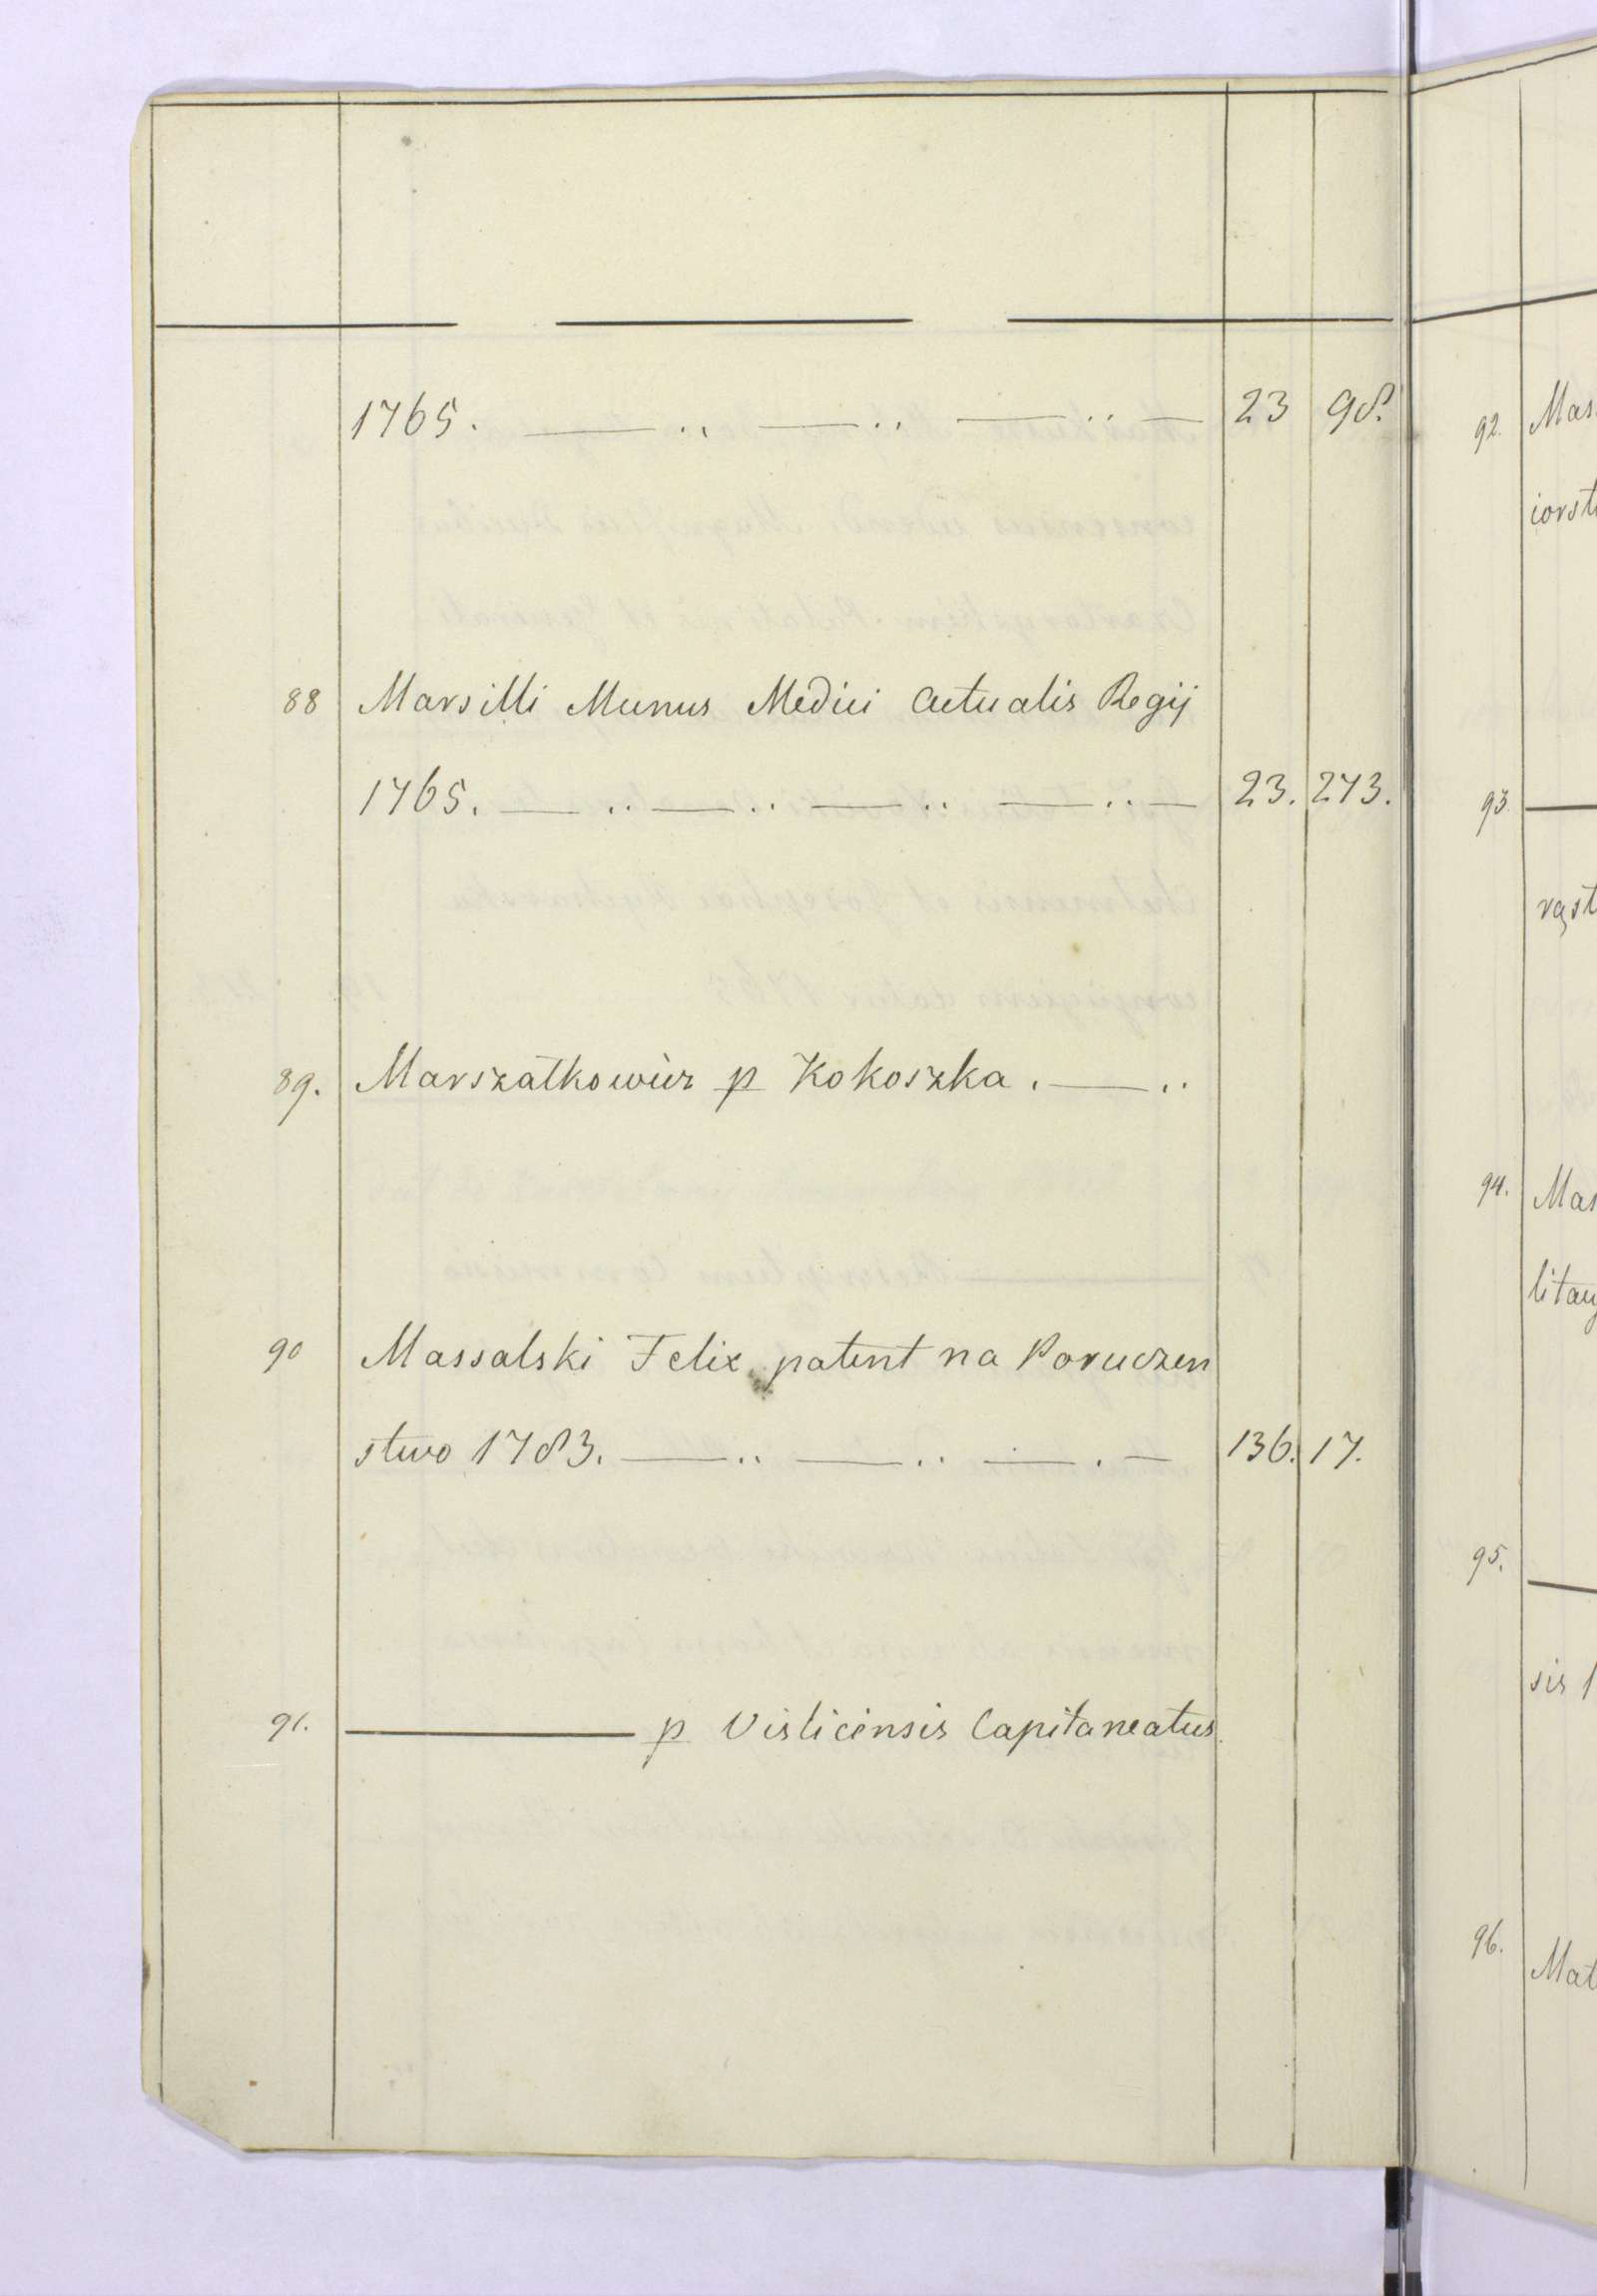 1765. —— .. —— .. —— .. — 23 98.
88 Marsilli Munus Medici Actualis Regij
1765. — .. — .. — .. — .. — 23. 273.
89. Marszałkowicz p Kokoszka . — ..
90 Massalski Felix patent na Poruczen
stwo 1783. — .. — .. — . — 136. 17.
91. ——— p Vislicensis Capitaneatus.
92. Mas
iorst
93. —
rąst
94. Mas
litau
95. —
sis 1
96. Mat